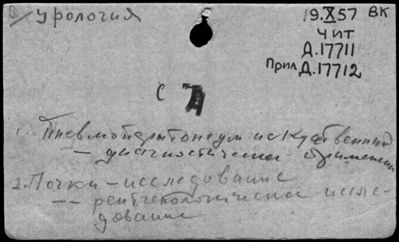 Д/урология
19.X57 ВК
Чит
Д.17711
Прил Д.17712
С
1. Пневмоперитонеум искуственный
— диагностическое применен
2. Почки – исследование
-- рентгенологическое иссле-
дование